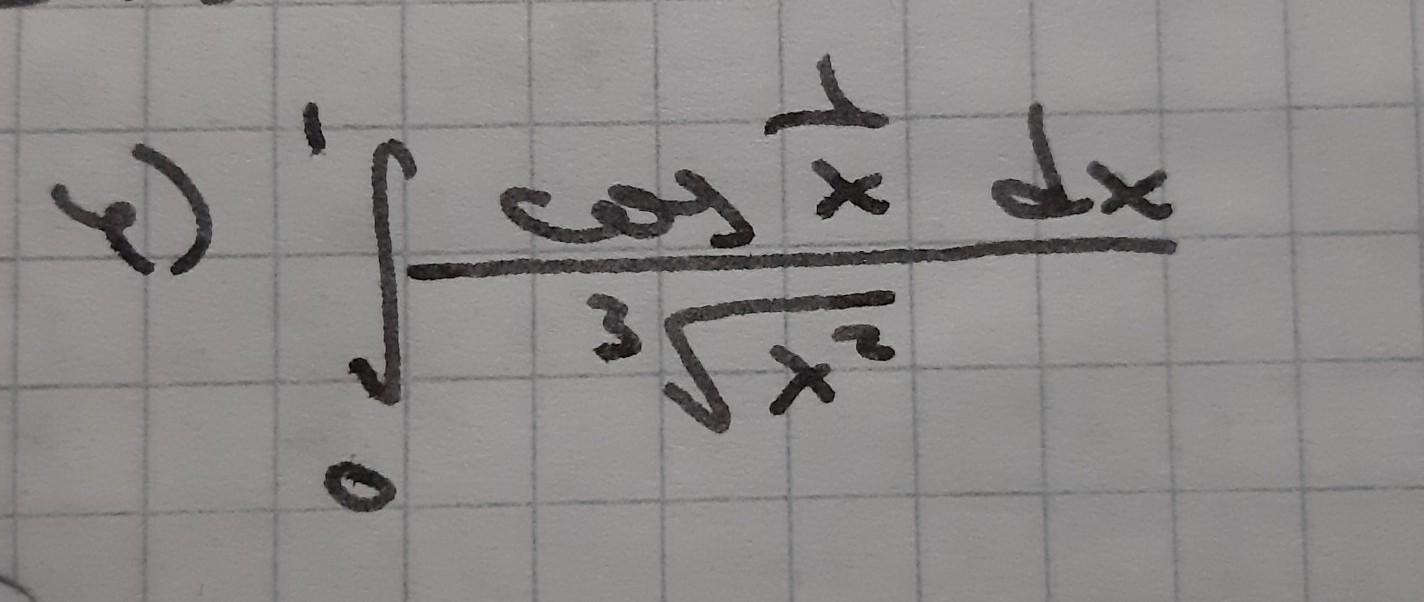 e) ∫₀¹ cos(1/x) dx / ∛(x²)